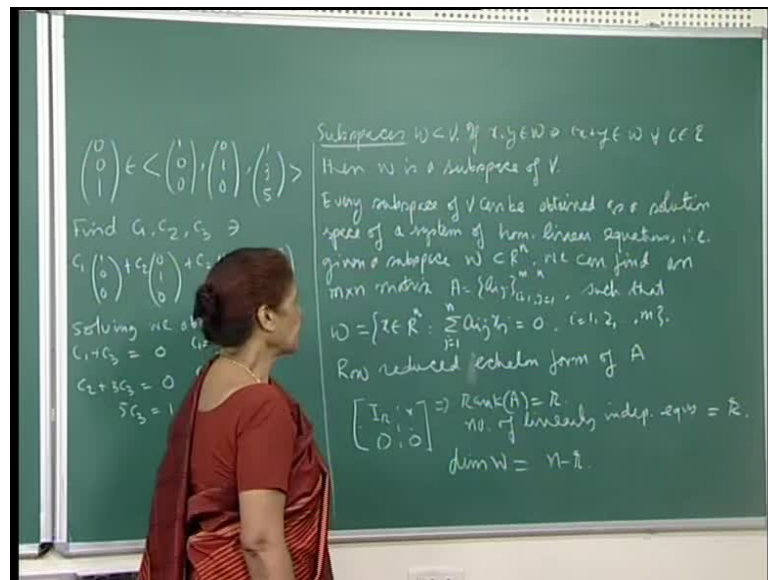 (0 0 1) ∈ < (1 0 0), (0 1 0), (1 3 5) >
Find C₁, C₂, C₃ ∋
C₁ (1 0 0) + C₂ (0 1 0) + C₃
Solving we
C₁ + C₃ = 0
C₂ + 3C₃ = 0
5C₃ = 1
Subspaces W ⊂ V. If x, y ∈ W ⇒ cx+y ∈ W ∀ c ∈
then W is a subspace of V.
Every subspace of V can be obtained as a solution
space of a system of hom. linear equations, i.e.
given a subspace W ⊂ Rⁿ, we can find an
m×n matrix A = {aij} i=1, j=1 m n, such that
W = {x ∈ Rⁿ : ∑ j=1 n aij xj = 0, i=1, 2, , m}.
Row reduced echelm form of A
[ I_r : * 0 : 0 ] ⇒ Rank(A) = r.
no. of linearly indep. equs = r.
dim W = n-r.